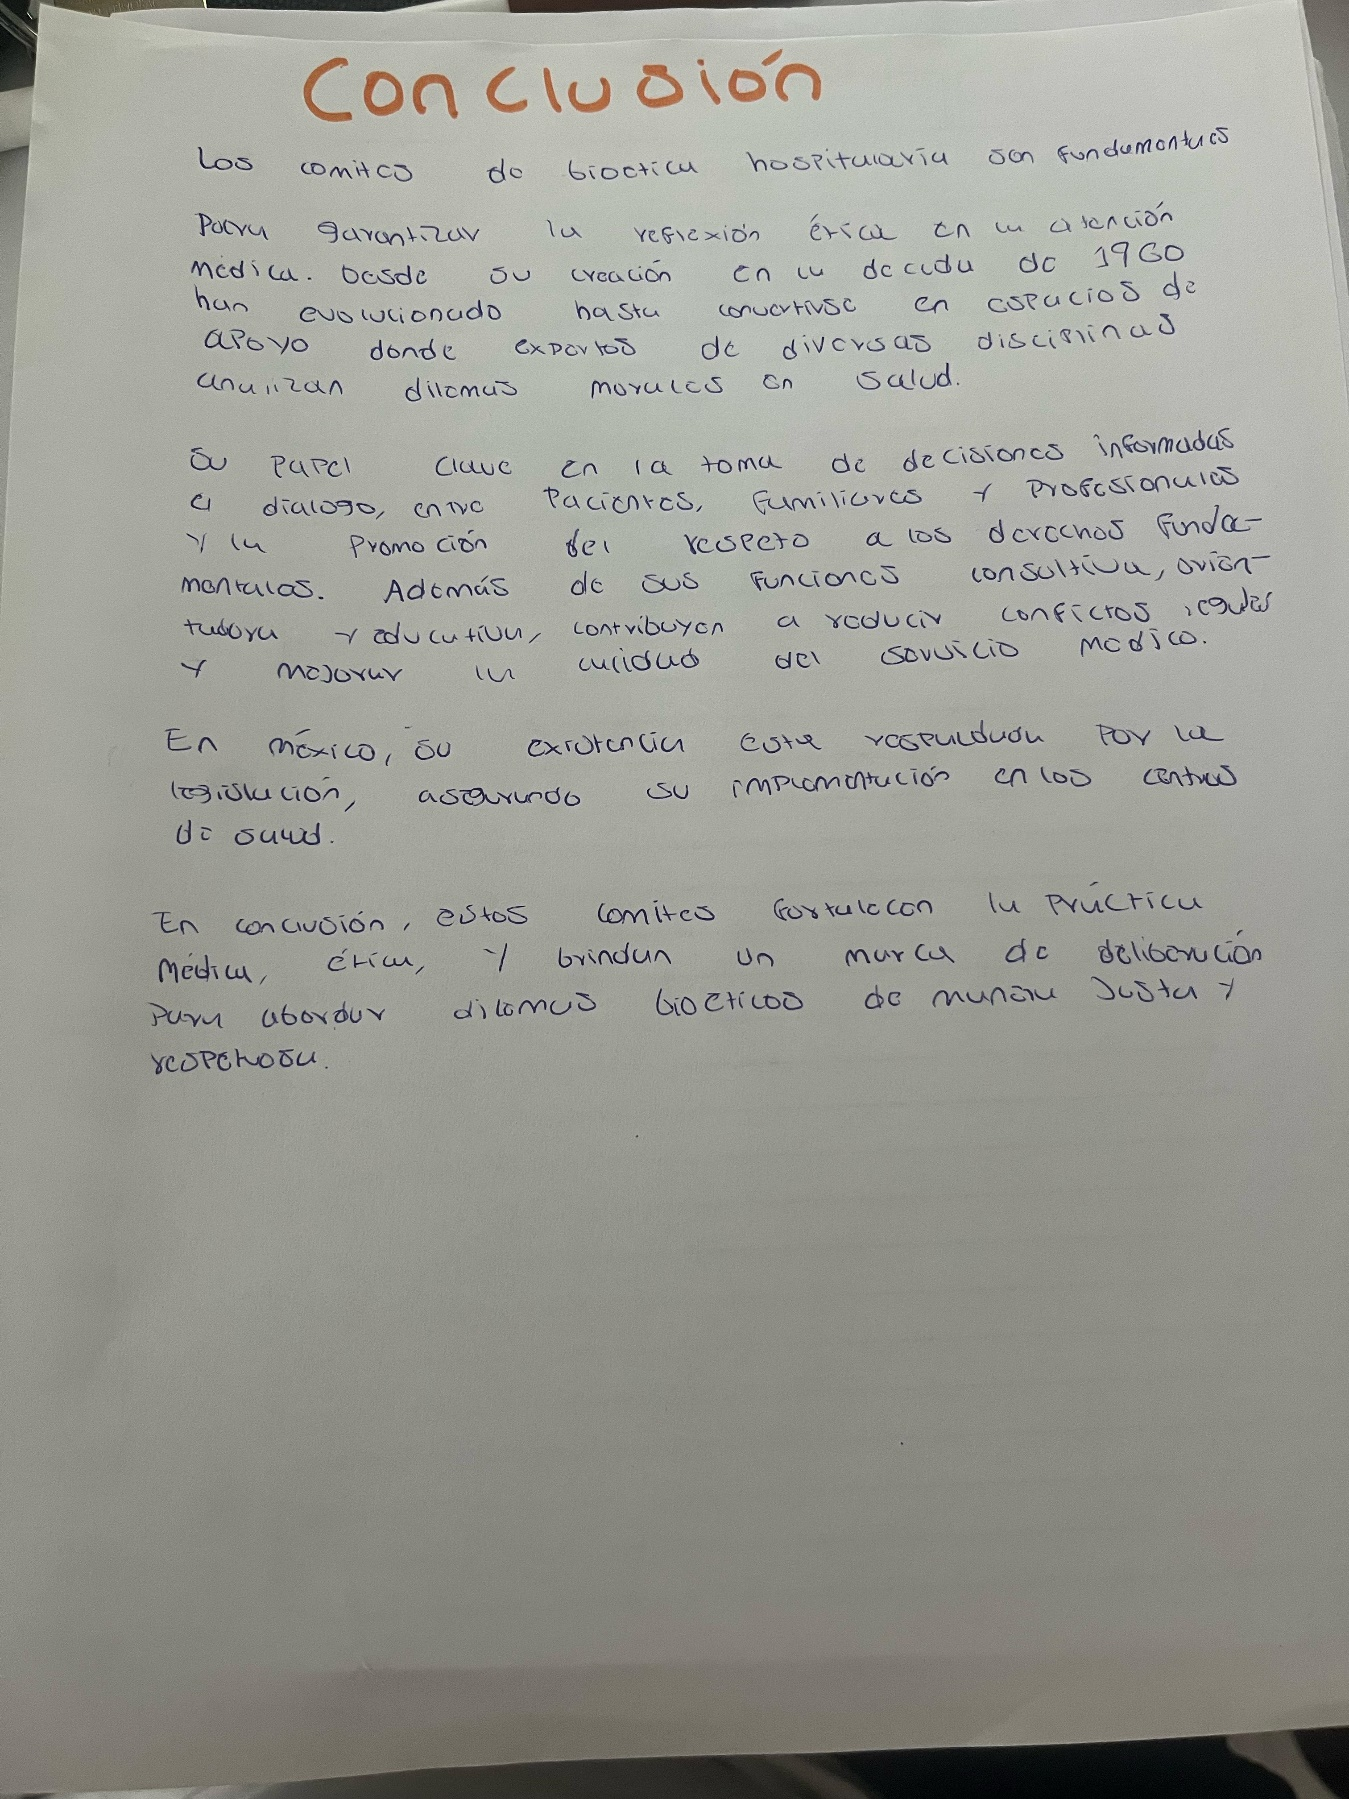 Conclusión
Los comites de bioetica hospitalaria son fundamentales
Para garantizar la reflexión ética en la atención
médica. Desde su creación en la decada de 1960
han evolucionado hasta convertirse en espacios de
apoyo donde expertos de diversas disciplinas
analizan dilemas morales en salud.
Su papel clave en la toma de decisiones informadas
el dialogo, entre Pacientes, Familiares y Profesionales
y la Promoción del respeto a los derechos Funda-
mentales. Además de sus Funciones consultiva, orien-
tadora y educativa, contribuyen a reducir conflictos legales
y mejorar la calidad del servicio medico.
En méxico, su existencia esta respaldada por la
legislación, asegurando su implementación en los centros
de salud.
En conclusión, estos comites fortalecen la Práctica
Médica, ética, y brindan un marca de deliberación
Para abordar dilemas bioéticos de manera Justa y
respetuosa.